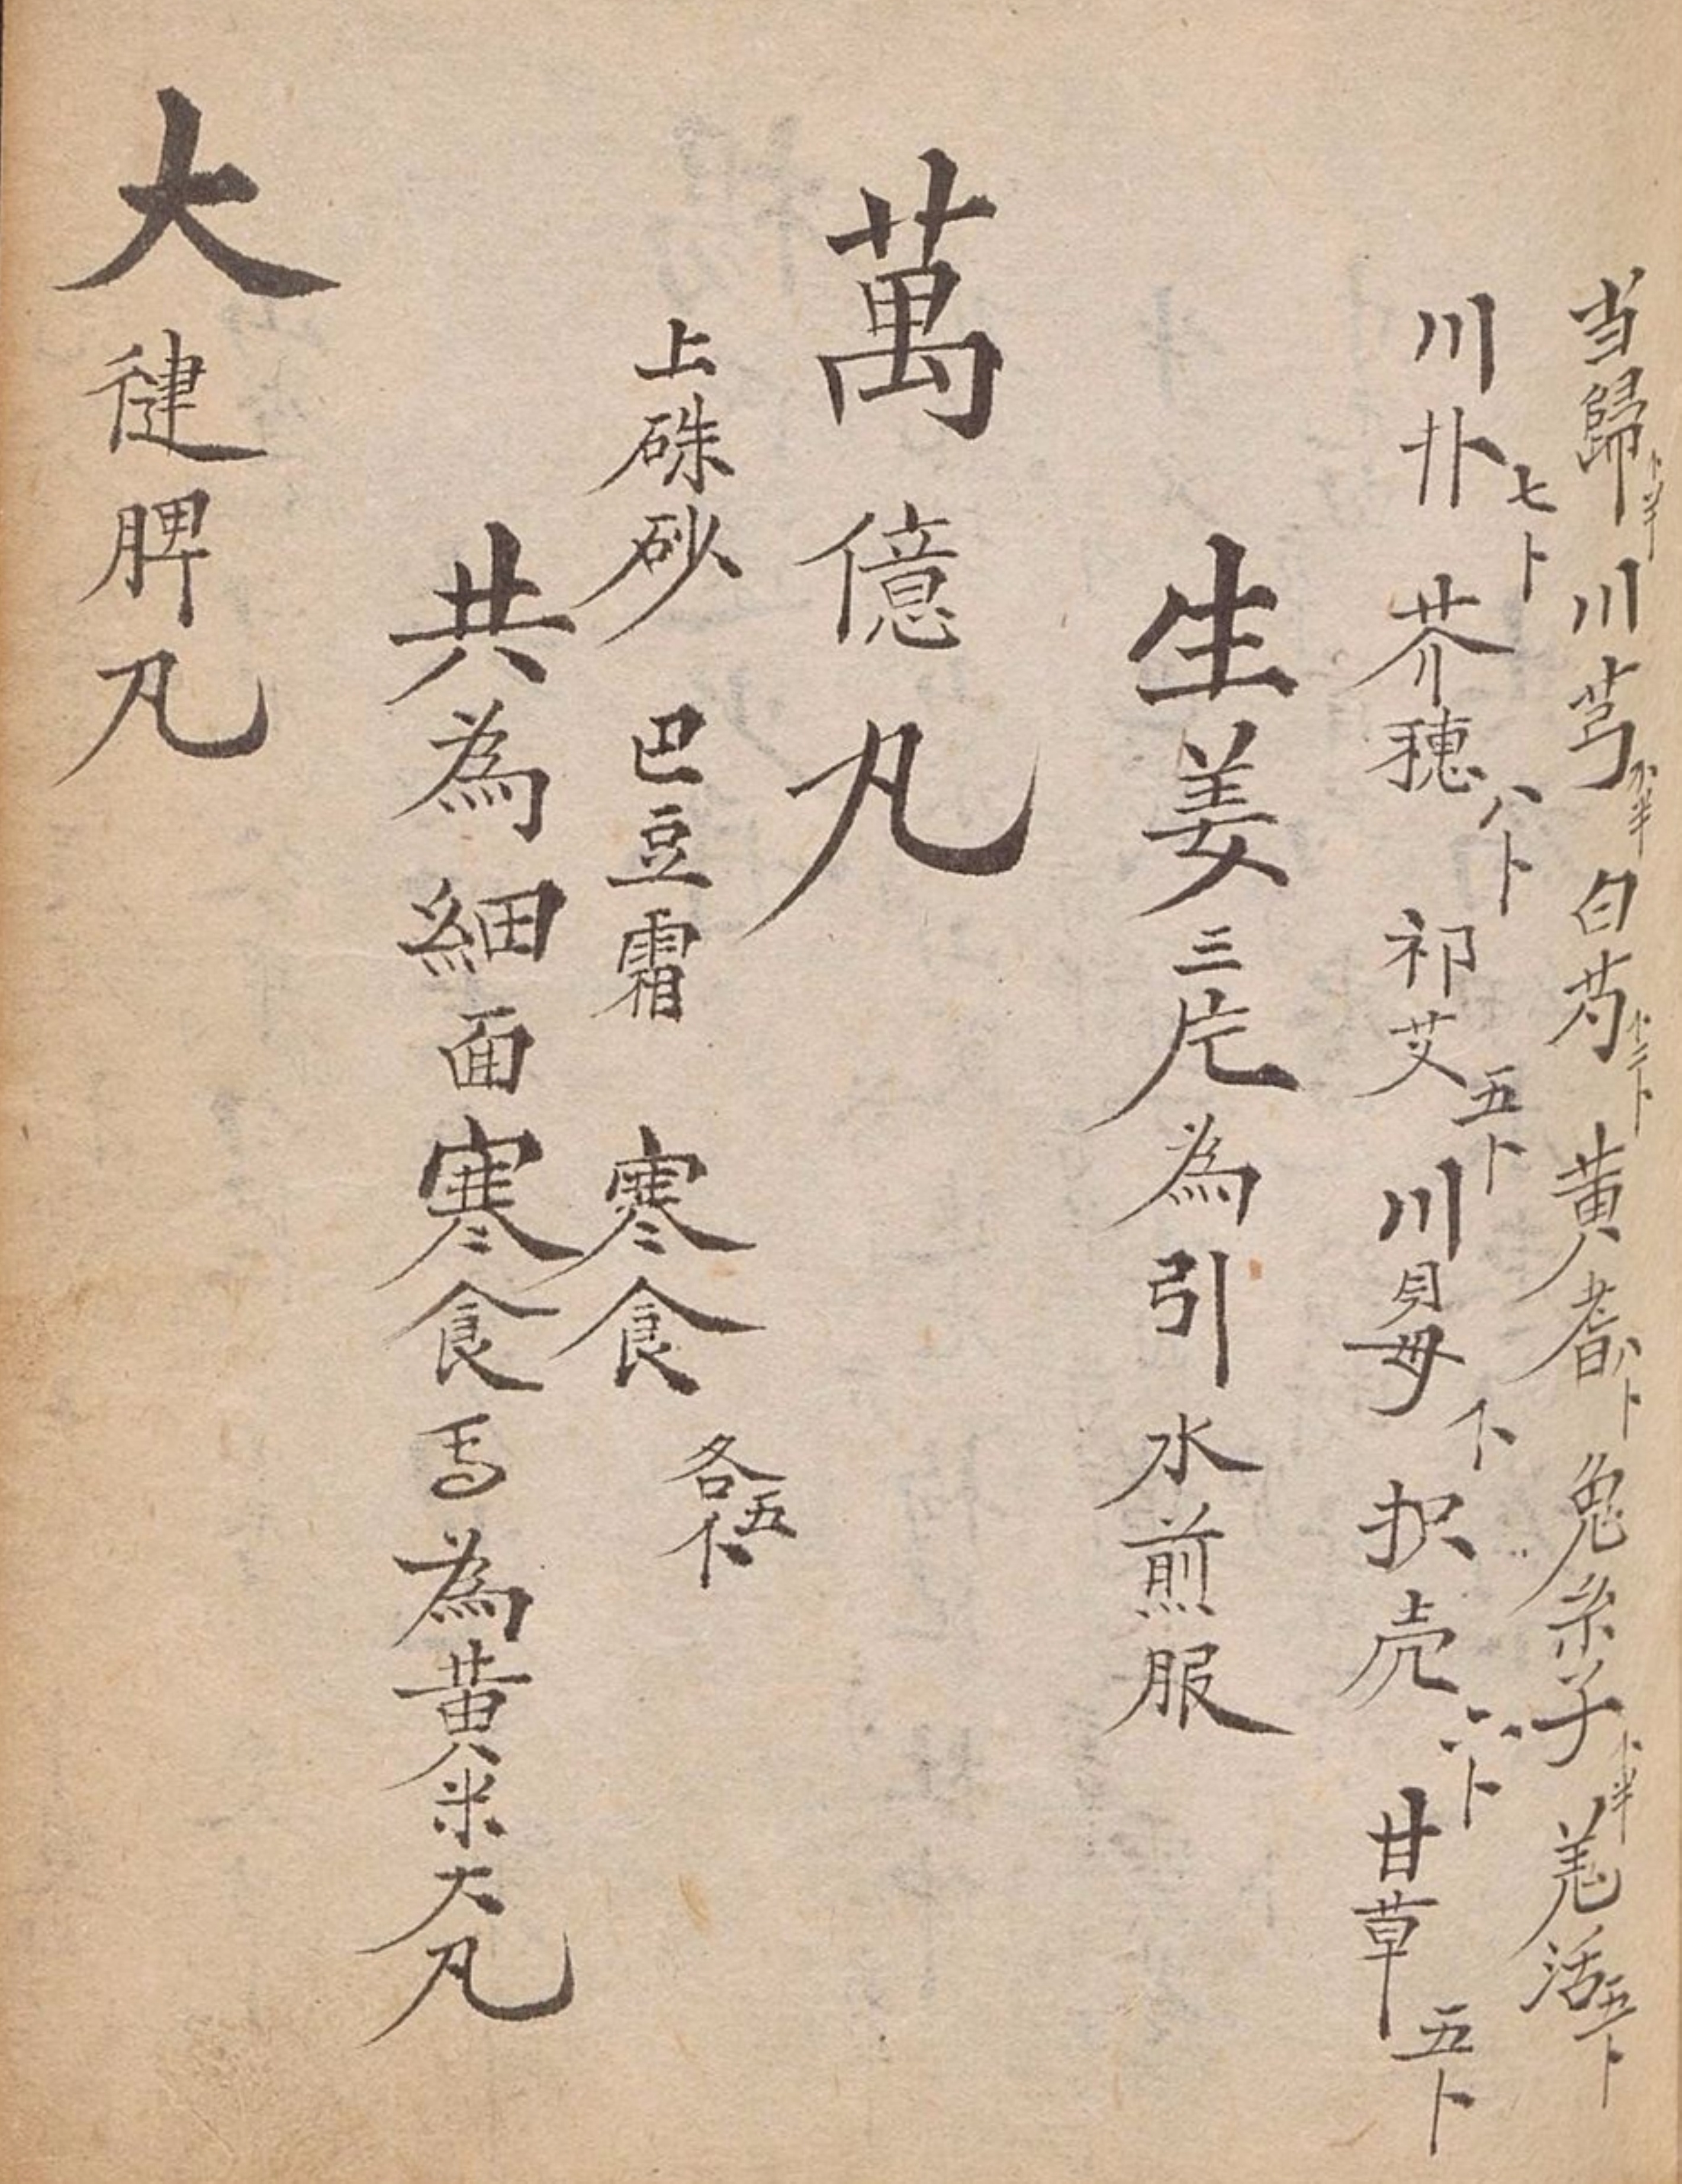 当歸卜半川芎卜半白芍卜二卜黄耆八卜兔糸子卜半羌活五卜
川朴七卜芥穗八卜祁艾五卜川貝母卜択壳六卜甘草五卜
生姜三片為引水煎服
萬億丸
上硃砂巴豆霜寒食各五
共為細面寒食為黄米大丸
大健脾丸